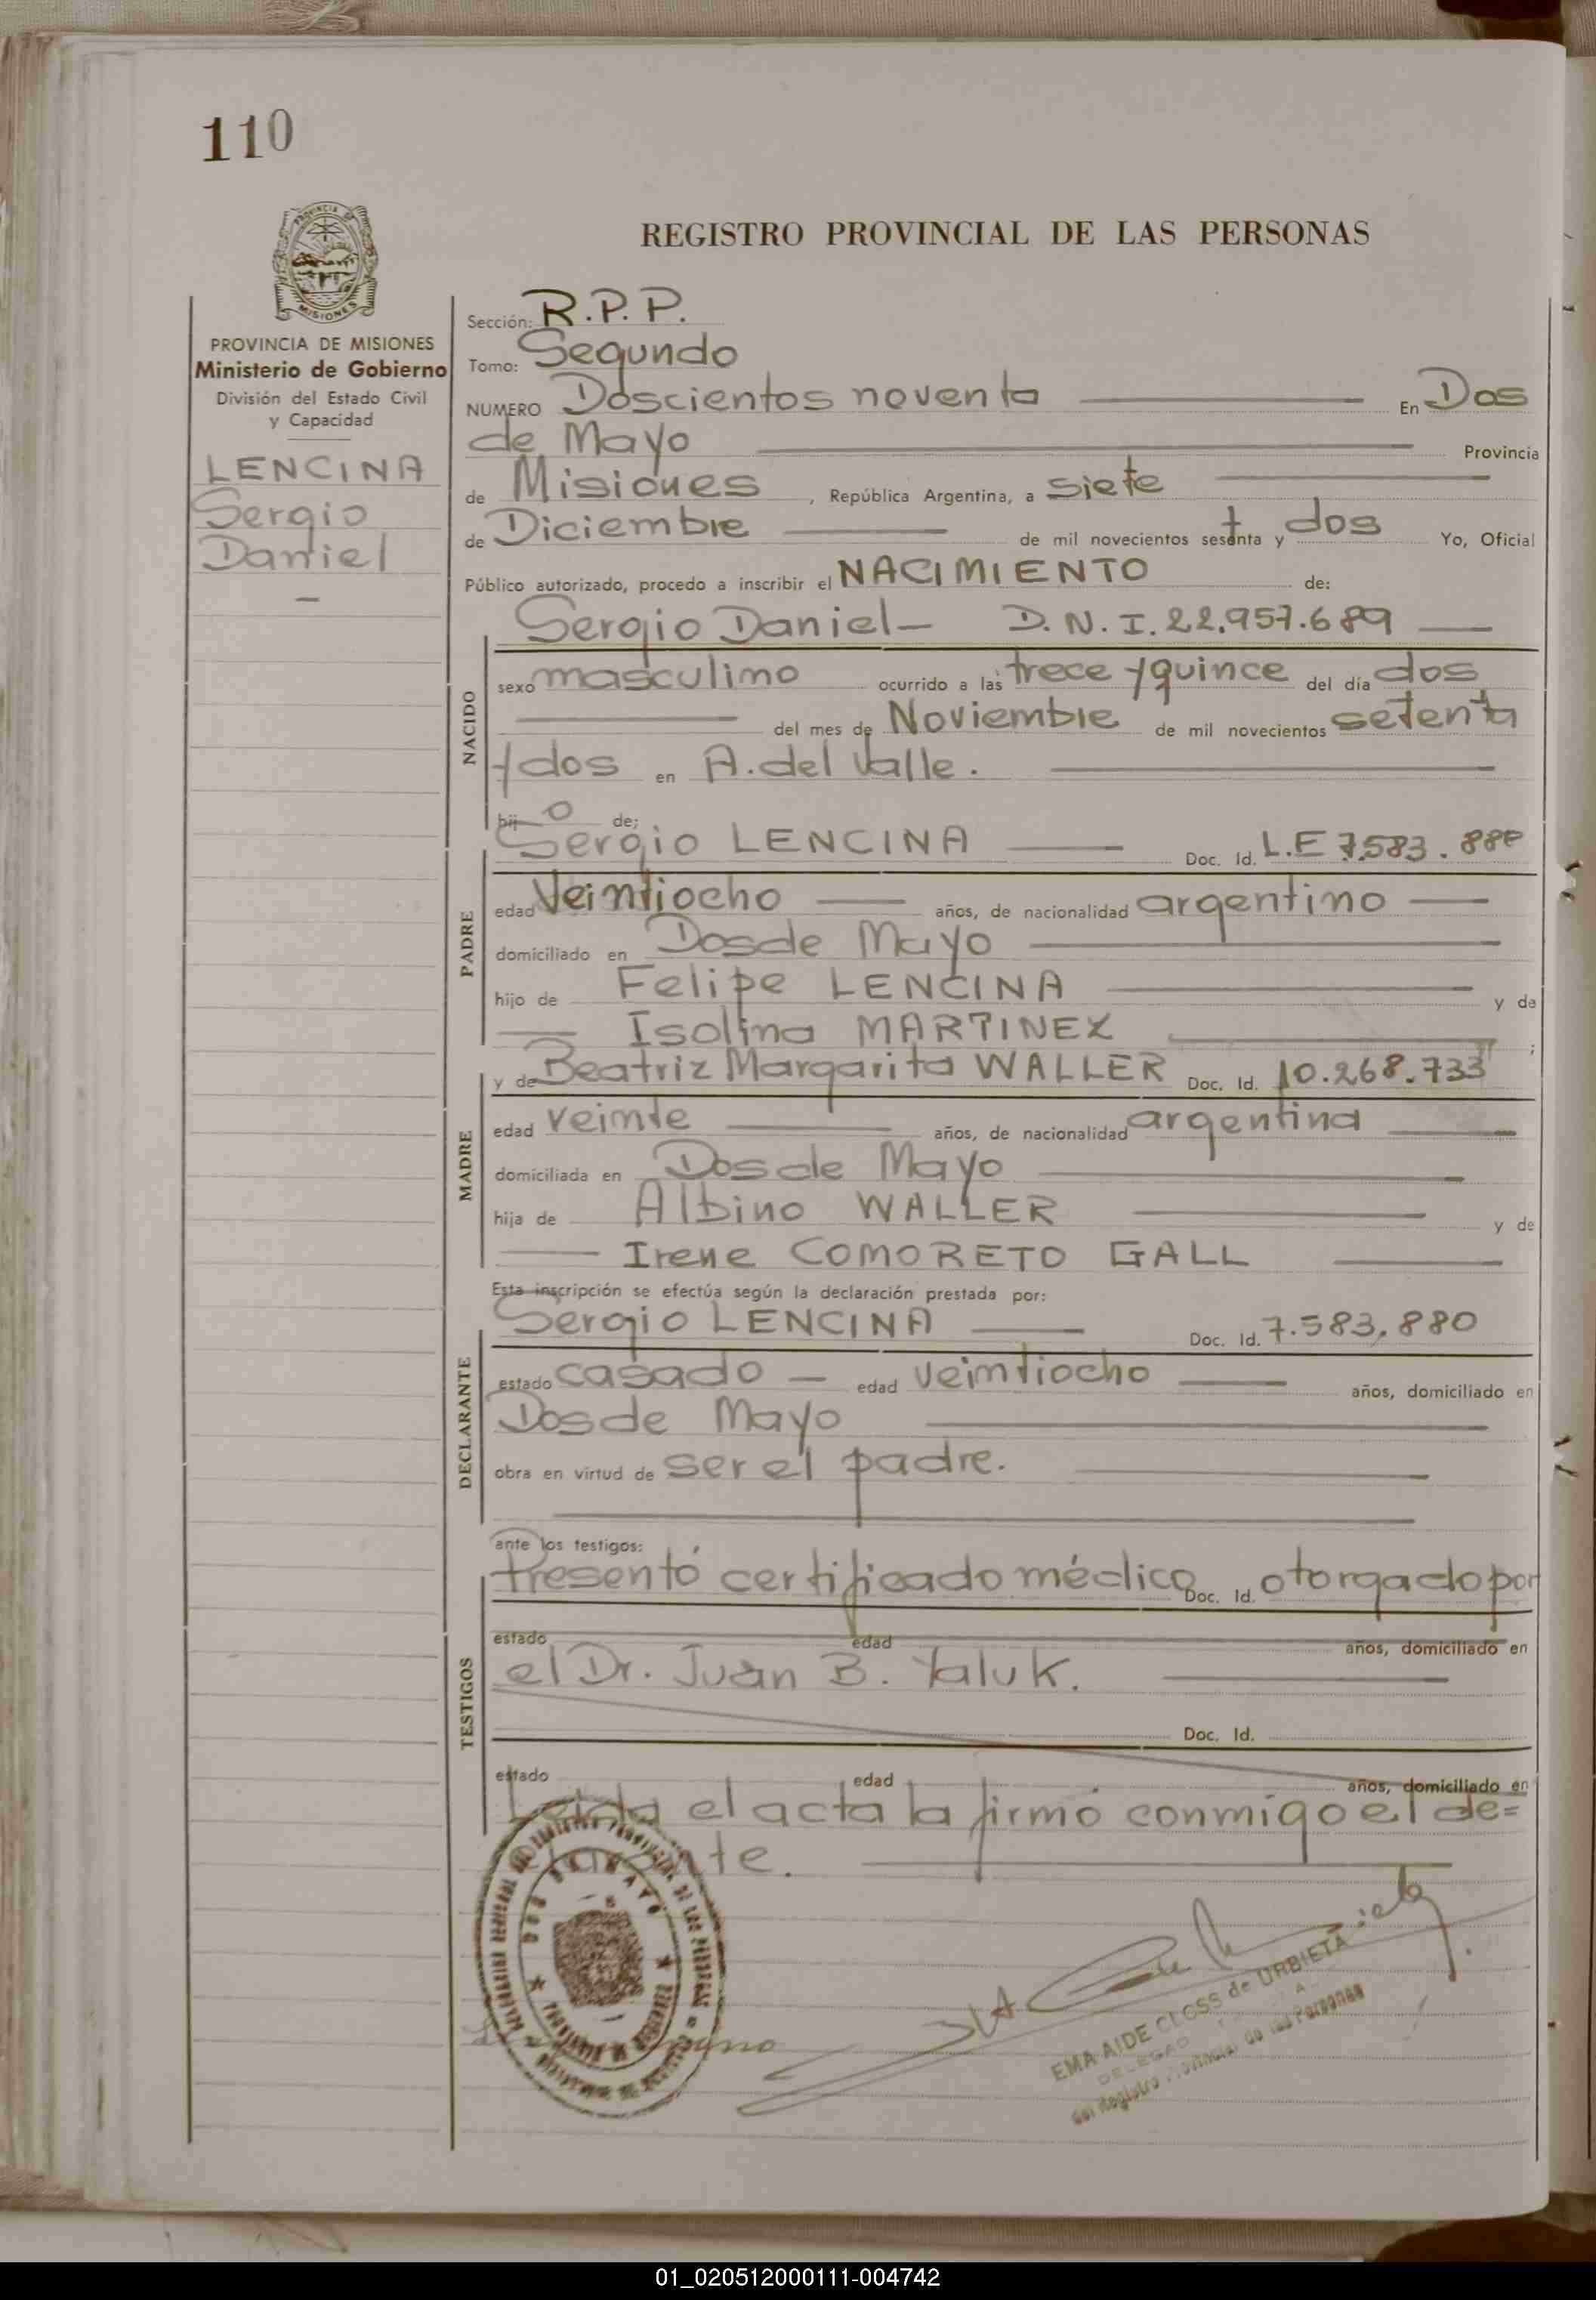 110
REGISTRO PROVINCIAL DE LAS PERSONAS
PROVINCIA DE MISIONES
Ministerio de Gobierno
División del Estado Civil
y Capacidad
LENCINA
Sergio
Daniel
Sección: R.P.P.
Tomo: Segundo
NUMERO Doscientos noventa En Dos
de Mayo Provincia
de Misiones, República Argentina, a siete
de Diciembre de mil novecientos sesenta y dos Yo, Oficial
t
Público autorizado, procedo a inscribir el NACIMIENTO de:
Sergio Daniel- D.N.I. 22.957.689
NACIDO
sexo masculino ocurrido a las trece y quince del día dos
del mes de Noviembre de mil novecientos setenta
y dos en A. del Valle.
hijo de;
PADRE
Sergio LENCINA Doc. Id. L.E 7.583.880
edad Veintiocho años, de nacionalidad argentino
domiciliado en Dos de Mayo
hijo de Felipe LENCINA y de
Isolina MARTINEZ ;
MADRE
y de Beatriz Margarita WALLER Doc. Id. 10.268.733
edad veinte años, de nacionalidad argentina
domiciliada en Dos de Mayo
hija de Albino WALLER y de
Irene COMORETO GALL
Esta inscripción se efectúa según la declaración prestada por:
DECLARANTE
Sergio LENCINA Doc. Id. 7.583.880
estado casado - edad veintiocho años, domiciliado en
Dos de Mayo
obra en virtud de ser el padre.
ante los testigos:
TESTIGOS
Presentó certificado médico Doc. Id. otorgado por
estado edad años, domiciliado en
el Dr. Juan B. Yaluk.
Doc. Id.
estado edad años, domiciliado en
Leída el acta la firmó conmigo el de=
clarante.
DOS DE MAYO
EMA AIDE CLOSS de URBIETA
DELEGADA
del Registro Provincial de las Personas
01_020512000111-004742